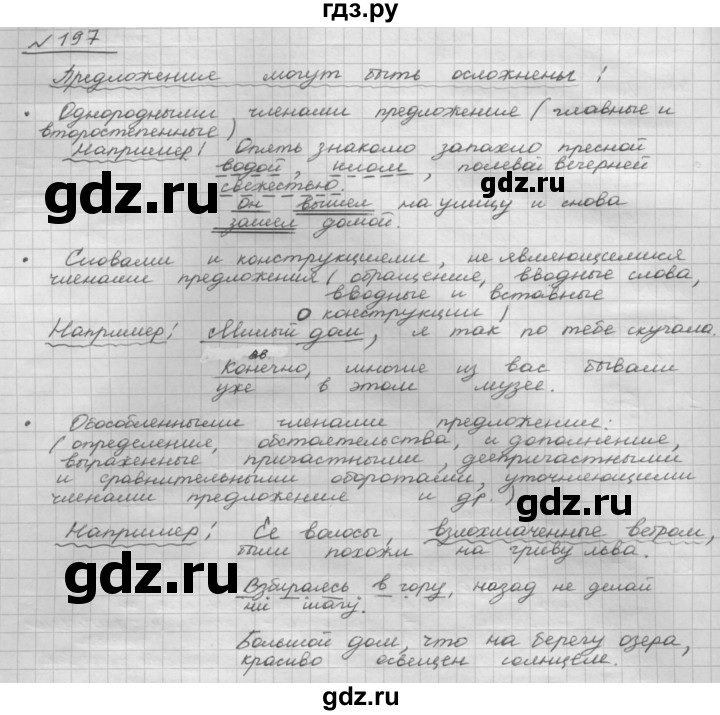 гдз.ру
№ 197
Предложения могут быть осложнены:
• Однородными членами предложения (главные и
второстепенные)
Например: Опять знакомо запахло пресной
водой, илом, полевой вечерней
свежестью.
Он вышел на улицу и снова
зашел домой.
• Словами и конструкциями, не являющимися
членами предложения (обращение, вводные слова,
вводные и вставные
конструкции)
О
Например: Милый дом, я так по тебе скучала.
вв
Конечно, многие из вас бывали
уже в этом музее.
• Обособленными членами предложения:
(определение, обстоятельства, и дополнение,
выраженные причастными, деепричастными
и сравнительными оборотами, уточняющими
членами предложения и др.)
Например: Её волосы, взлохмаченные ветром,
были похожи на гриву льва.
Взбираясь в гору, назад не делай
ни шагу.
Большой дом, что на берегу озера,
красиво освещен солнцем.
gdz.ru
gdz.ru
gdz.ru
gdz.ru
gdz.ru
gdz.ru
gdz.ru